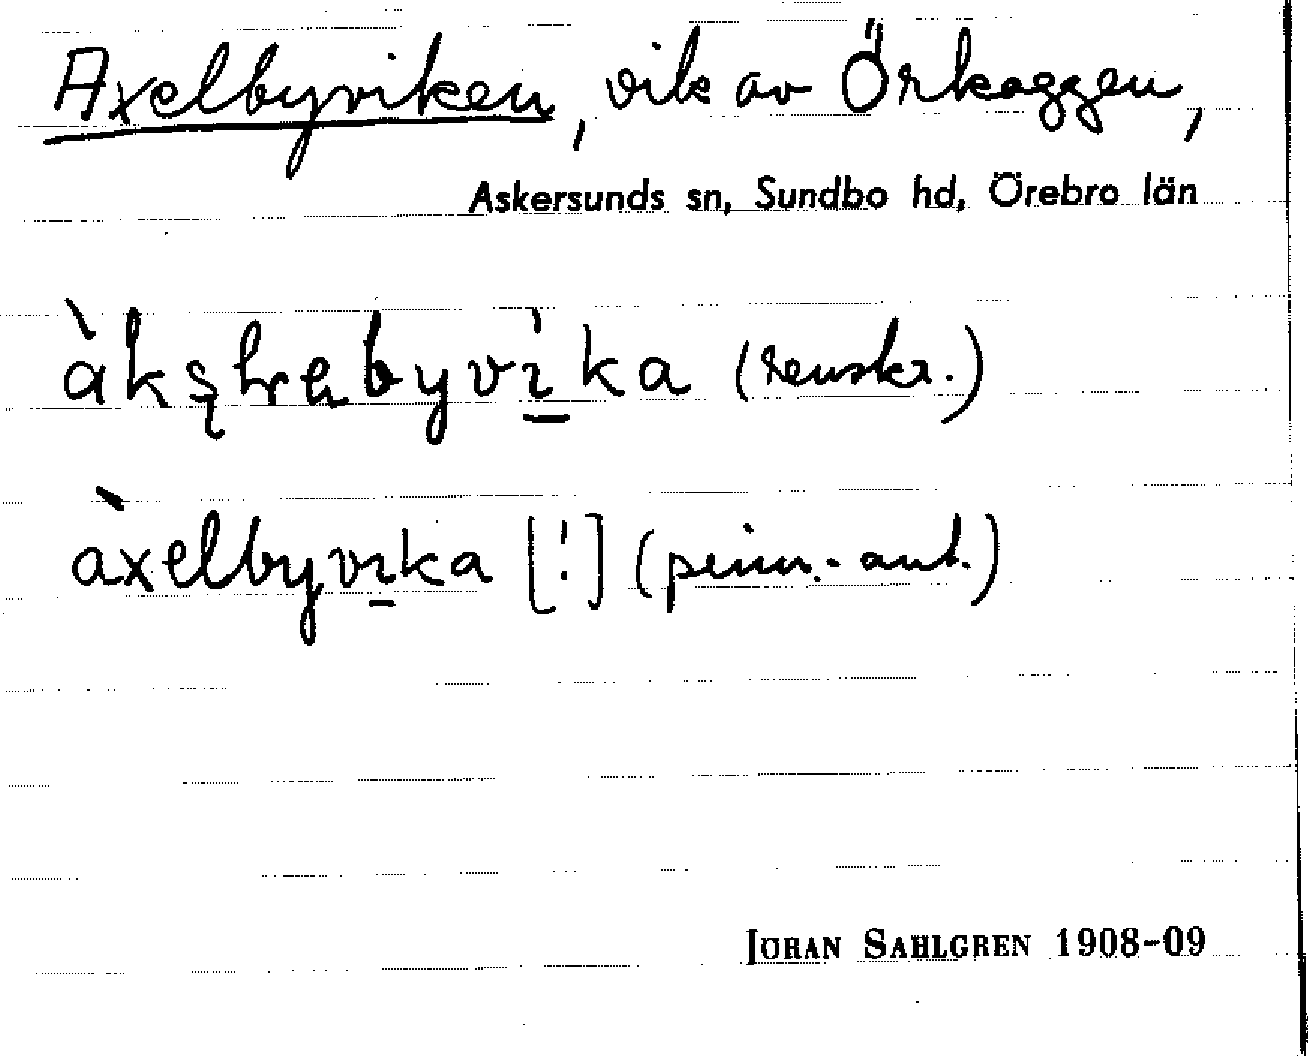 Axelbyviken, vik av Örkaggen,
Askersunds sn, Sundbo hd, Örebro län
(renskr.)
àxelbyvı̱ka [!] (prim.-ant.)
JÖRAN SAHLGREN 1908-09